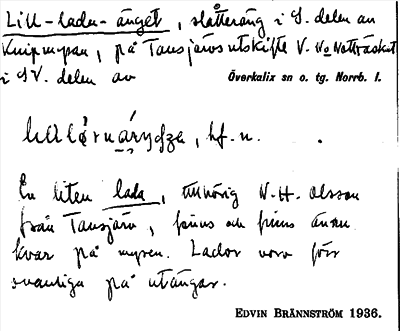 Lill-ladu-änget, slåtteräng i S. delen av
Knipmyran, på Tansjärvs utskifte V. No Nattträsket
i SV. delen av Överkalix sn o. tg. Norrb. l.
hf. n.
En liten lada, tillhörig N. H. Olsson
från Tansjärv, finns och finns ännu
kvar på myren. Lador voro förr
vanliga på utängar.
EDVIN BRÄNNSTRÖM 1936.